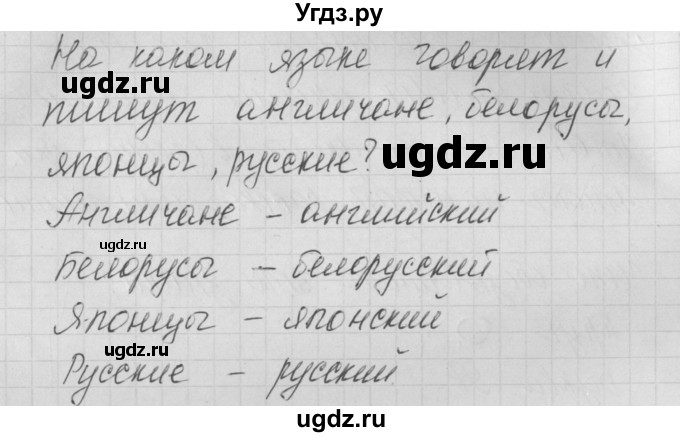 Угдз.ру
На каком языке говорят и
ugdz.ru
пишут англичане, белорусы,
японцы, русские?
ugdz.ru
Англичане – английский
ugdz.ru
Белорусы – белорусский
Японцы – японский
ugdz.ru
Русские – русский
ugdz.ru